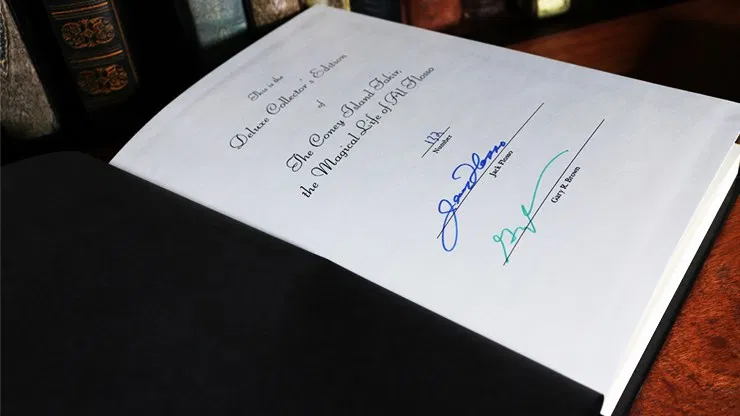 This is the
Deluxe Collector's Edition
of
The Coney Island Fakir,
the Magical Life of Al Flosso
112
Number
Jack Flosso
Gary R. Brown